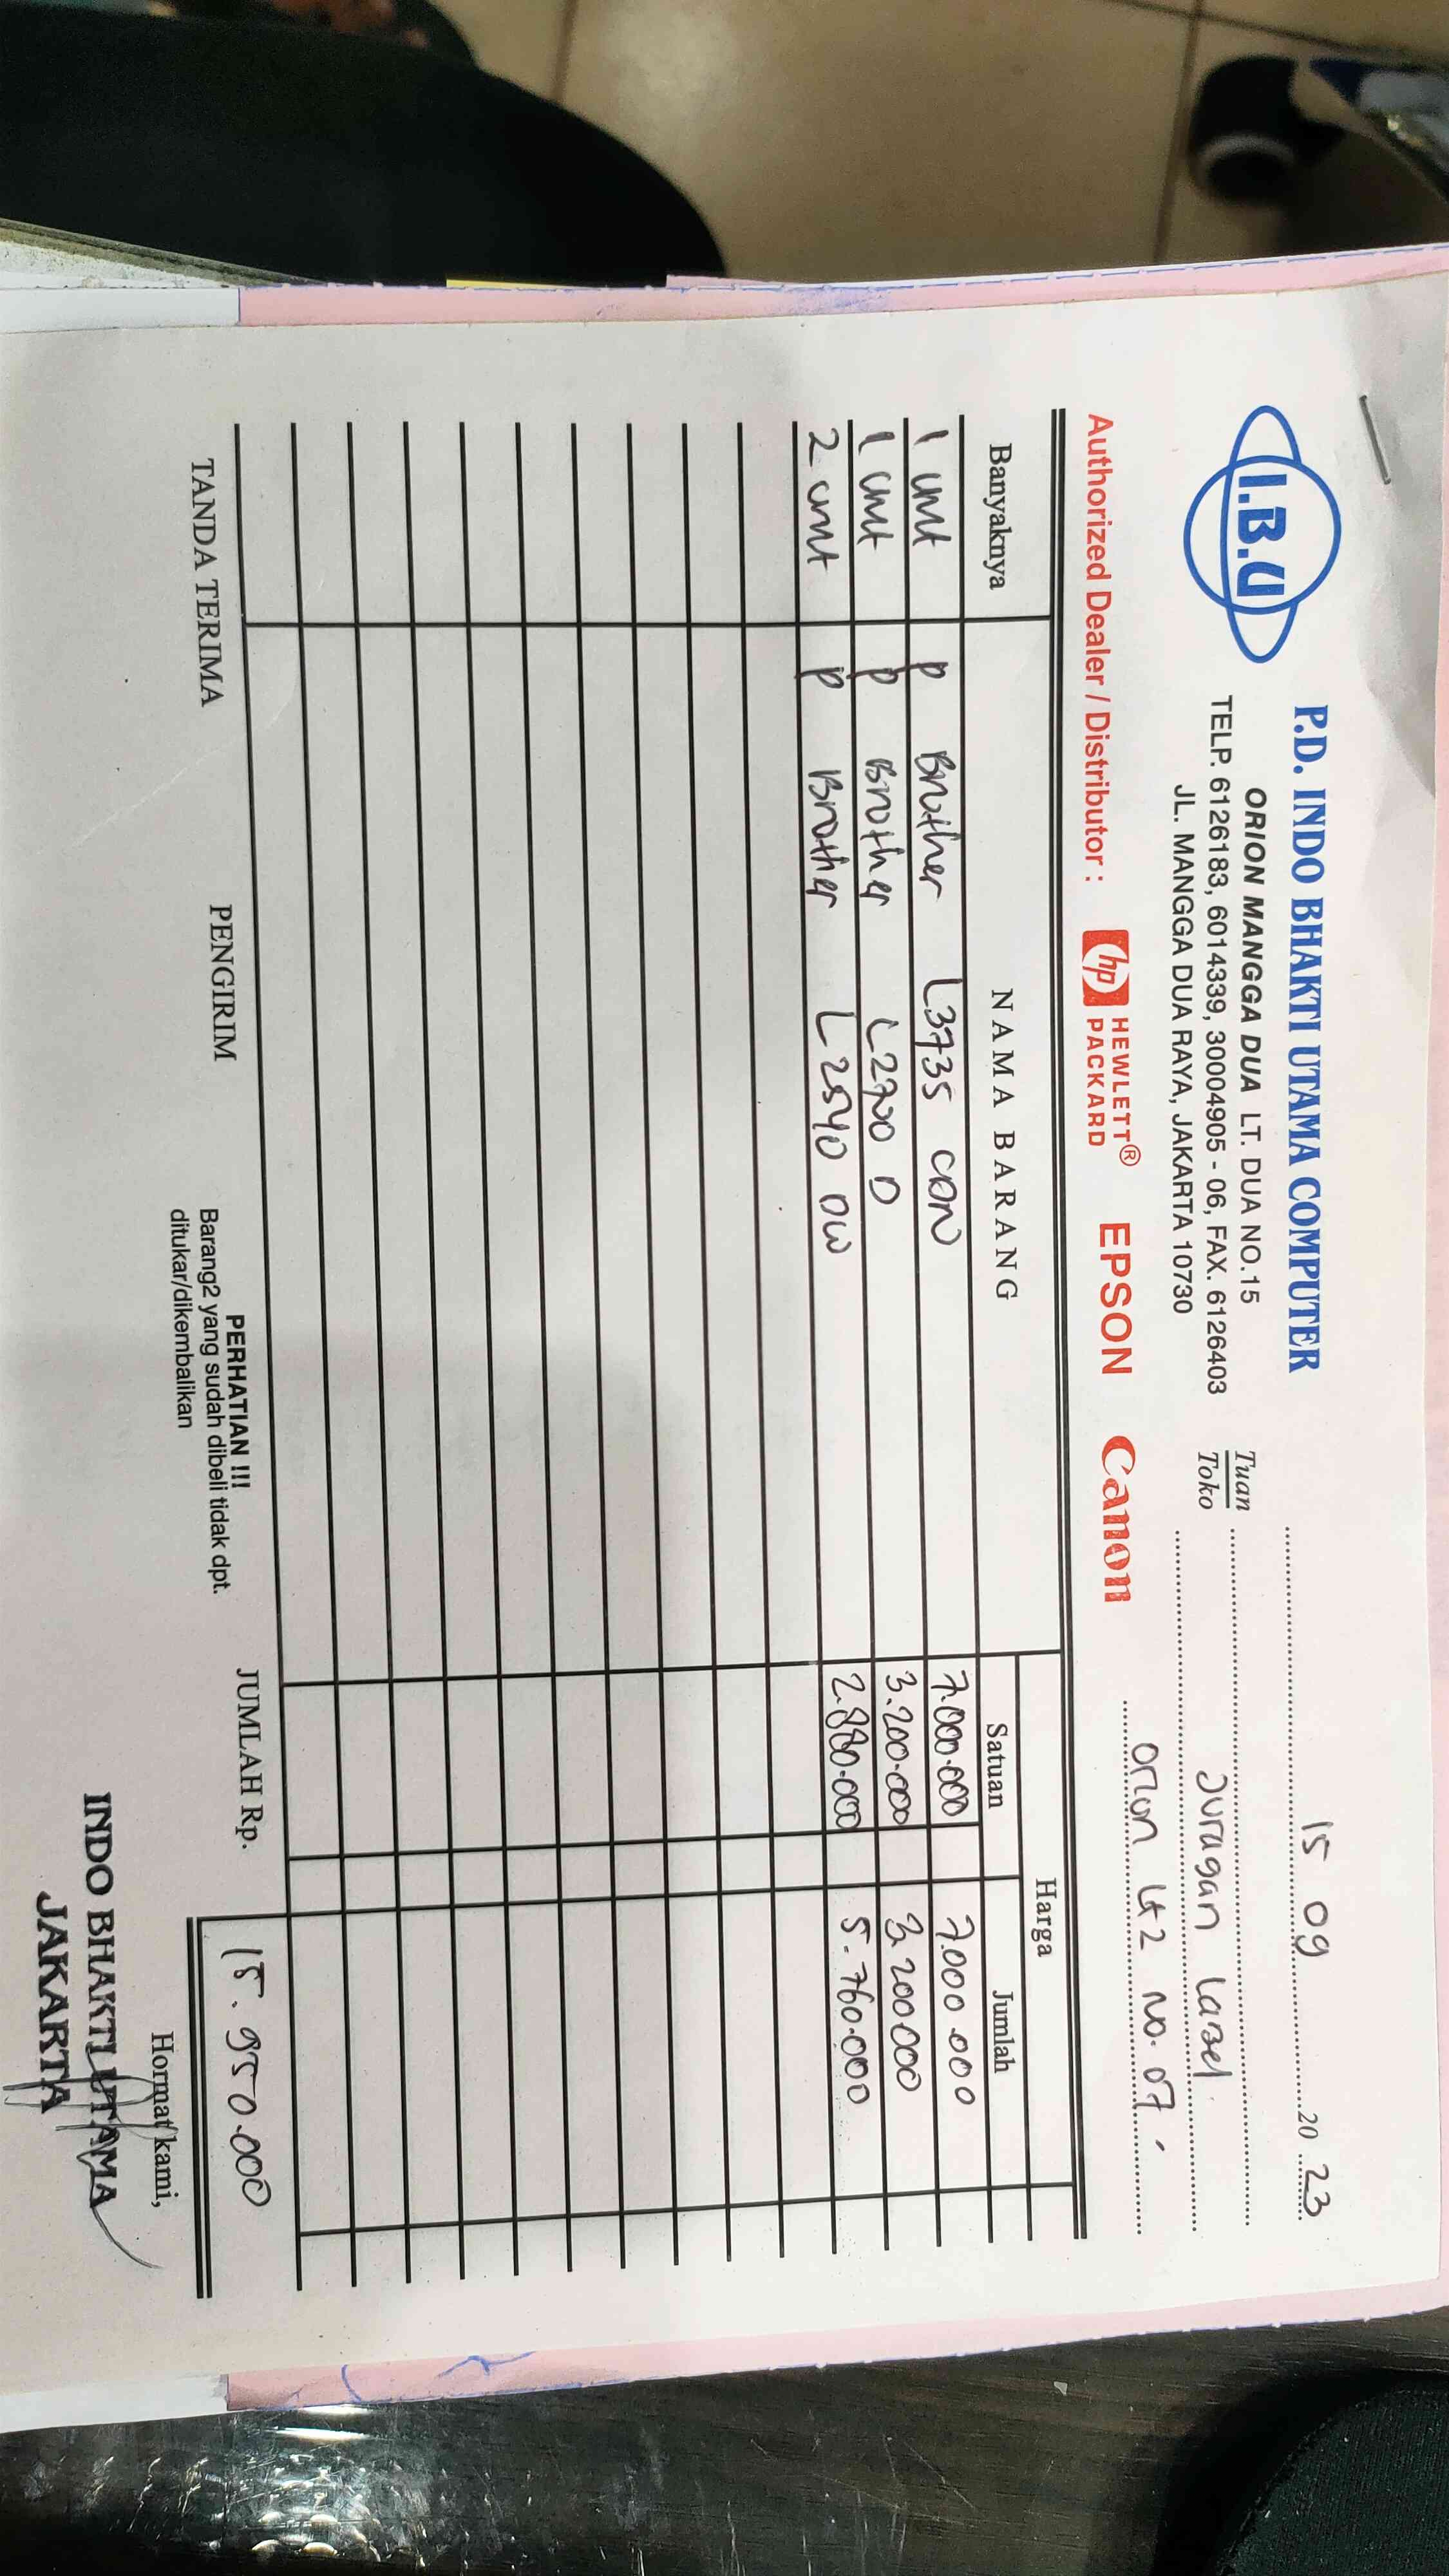 I.B.U
P.D. INDO BHAKTI UTAMA COMPUTER
ORION MANGGA DUA LT. DUA NO.15
TELP. 6126183, 6014339, 30004905 - 06, FAX. 6126403
JL. MANGGA DUA RAYA, JAKARTA 10730
15 09 20 23
Tuan
Toko
Juragan Lasel.
Orion Lt2 No. 07.
Authorized Dealer / Distributor : hp HEWLETT® PACKARD EPSON Canon
Banyaknya NAMA BARANG Harga
Satuan Jumlah
1 unit P Brother L3735 CDN 7.000.000 7.000.000
1 unit P Brother L2700 D 3.200.000 3.200.000
2 unit P Brother L2540 DW 2.880.000 5.760.000
TANDA TERIMA PENGIRIM
PERHATIAN !!!
Barang2 yang sudah dibeli tidak dpt.
ditukar/dikembalikan
JUMLAH Rp. 15.950.000
Hormat kami,
INDO BHAKTI UTAMA
JAKARTA